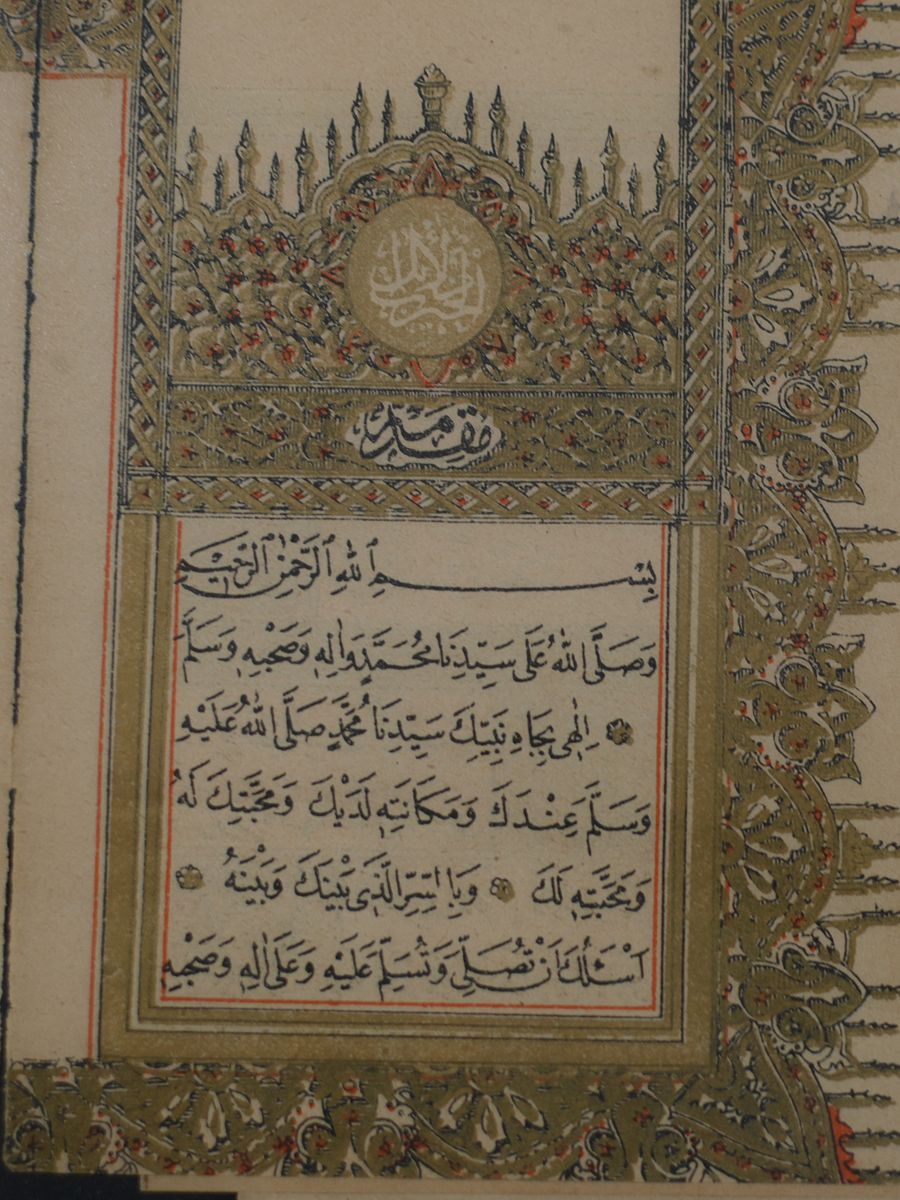 مقدمه
بِسْمِ اللهِ الرَّحْمٰنِ الرَّحِيمِ
وَصَلَّى اللهُ عَلَى سَيِّدِنَا مُحَمَّدٍ وَاٰلِهِ وَصَحْبِهِ وَسَلَّمَ
اِلٰهِى بِجَاهِ نَبِيِّكَ سَيِّدِنَا مُحَمَّدٍ صَلَّى اللهُ عَلَيْهِ
وَسَلَّمَ عِنْدَكَ وَمَكَانَتِهِ لَدَيْكَ وَمَحَبَّتِكَ لَهُ
وَمَحَبَّتِهِ لَكَ وَبِالسِّرِّ الَّذِى بَيْنَكَ وَبَيْنَهُ
اَسْئَلُكَ اَنْ تُصَلِّىَ وَتُسَلِّمَ عَلَيْهِ وَعَلَى اٰلِهِ وَصَحْبِهِ